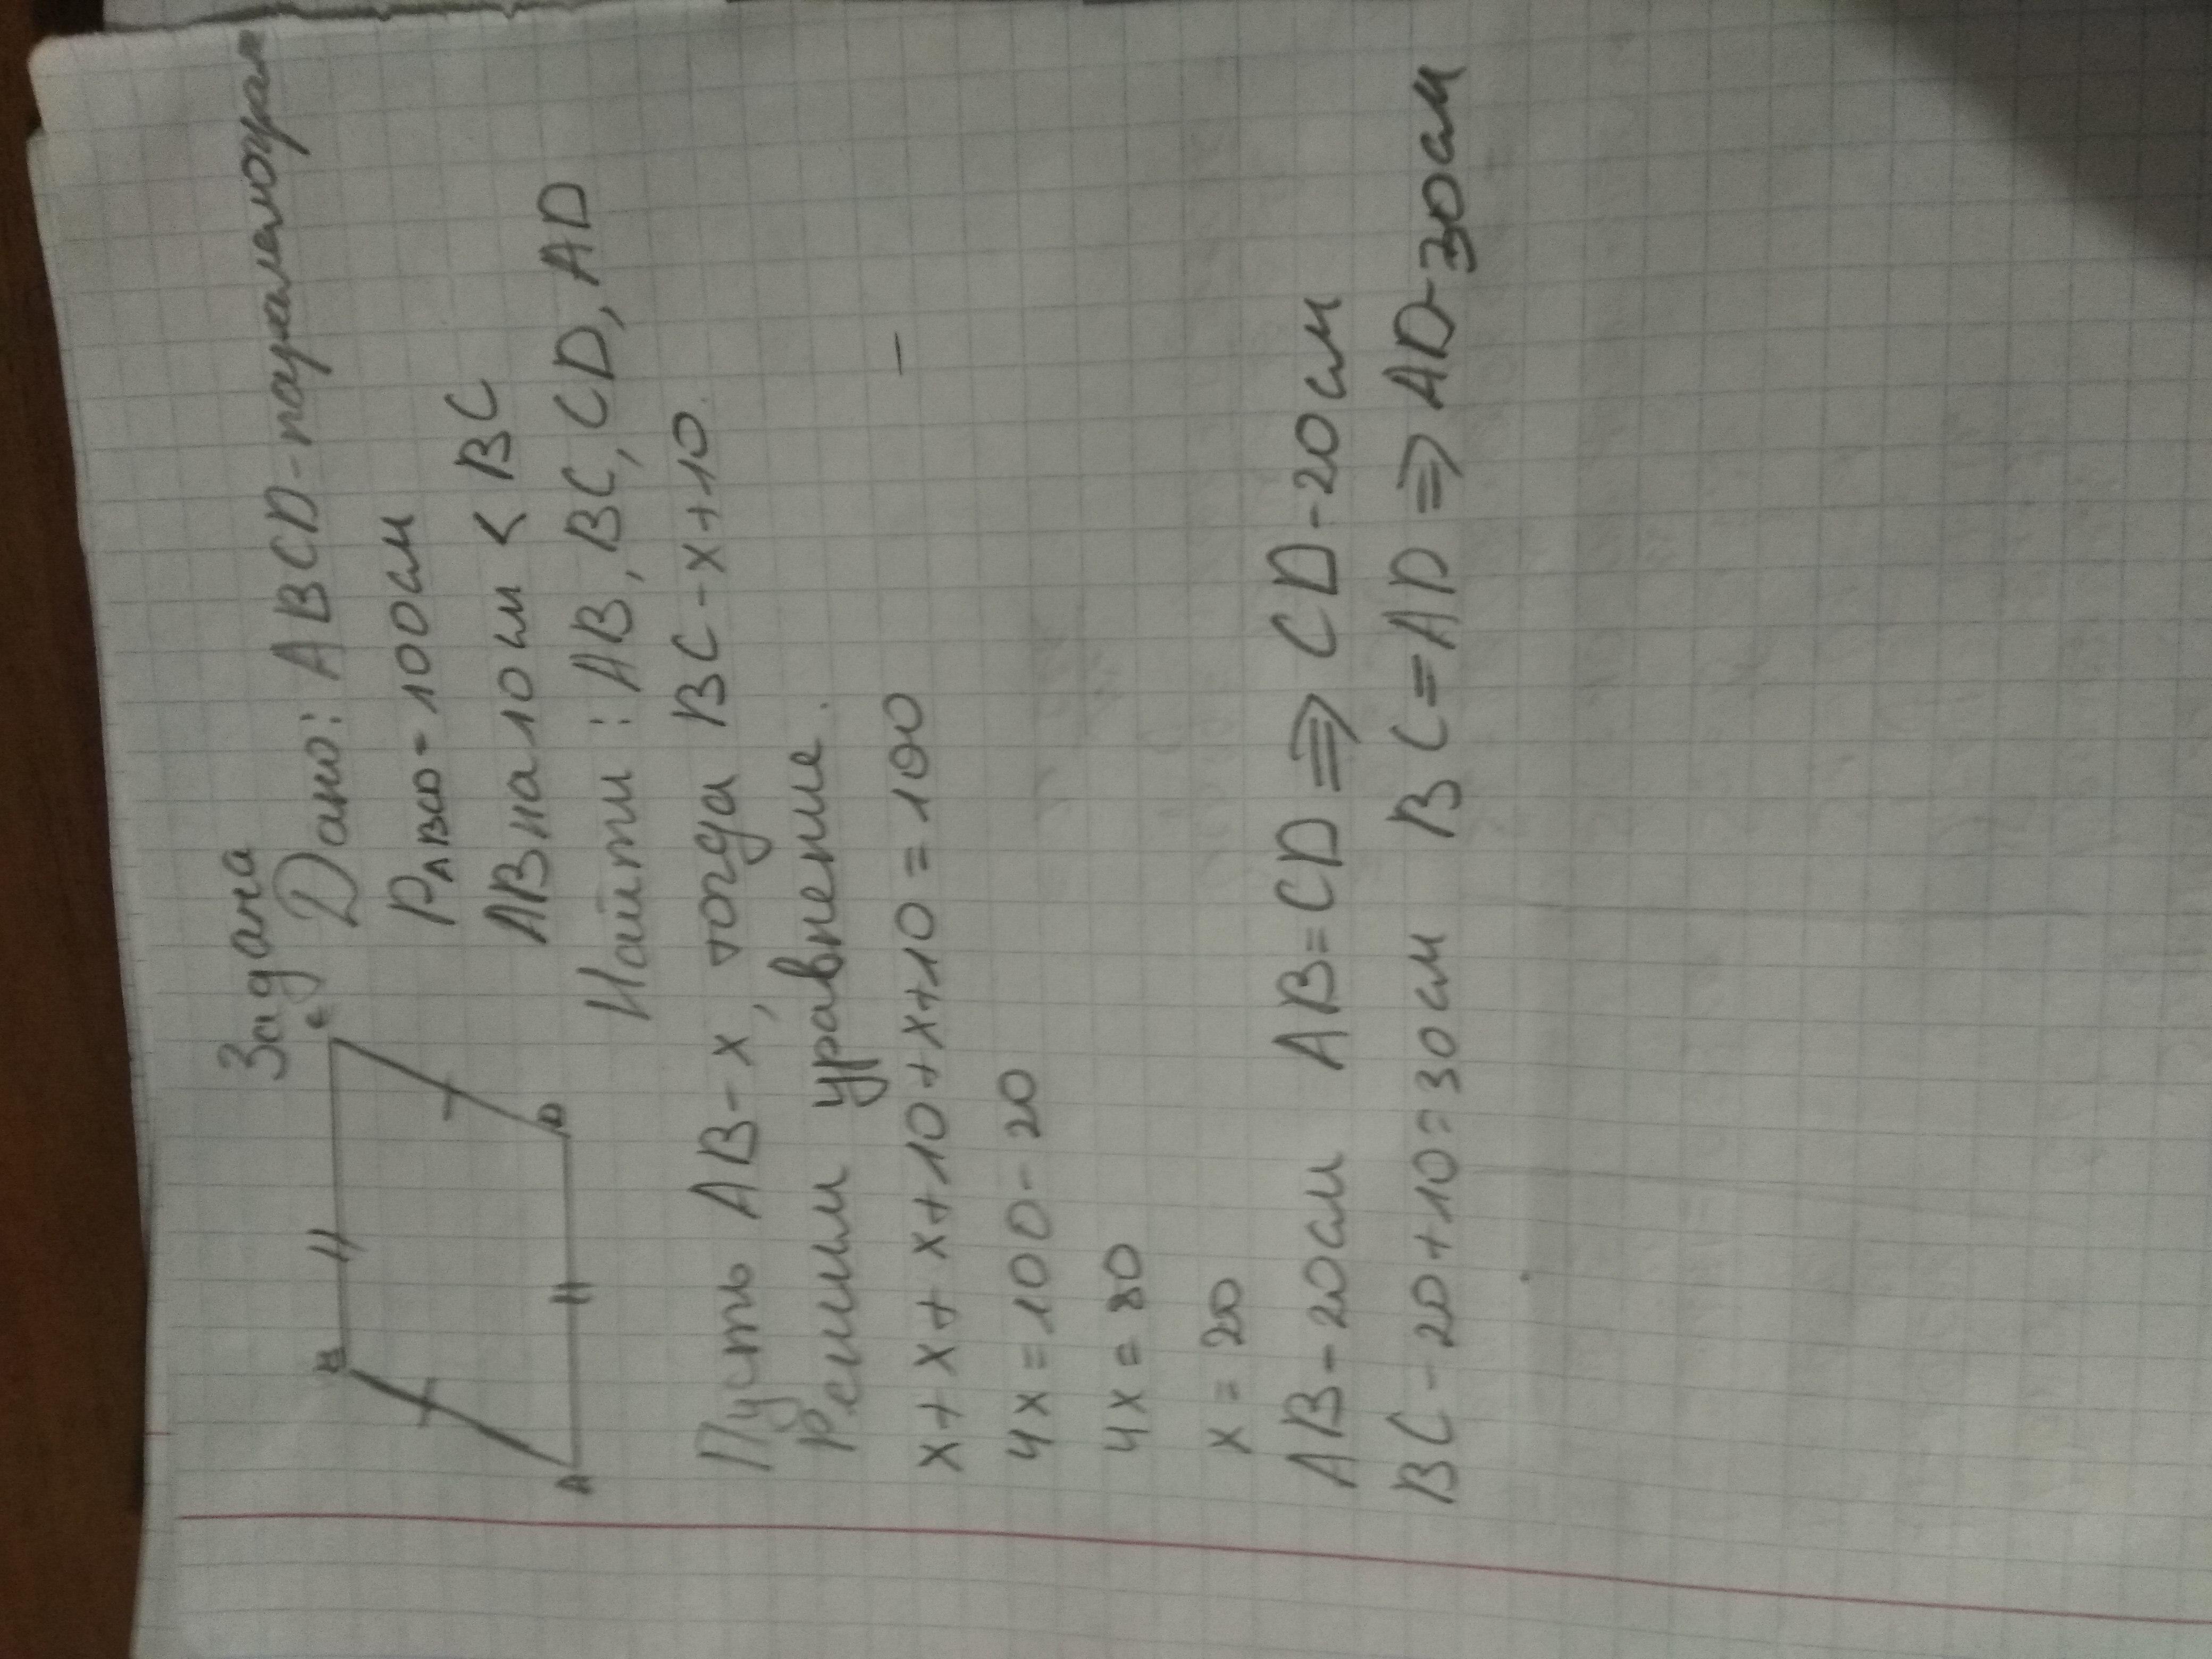 Задача
B
C
A
D
Дано: ABCD-параллелограм
PABCD-100см
AB на 10см < BC
Найти: AB, BC, CD, AD
Пусть AB-x, тогда BC-x+10.
Решим уравнение.
x+x+x+10+x+10=100
4x=100-20
4x=80
x=20
AB-20см AB=CD⇒CD-20см
BC-20+10=30см BC=AD⇒AD-30см